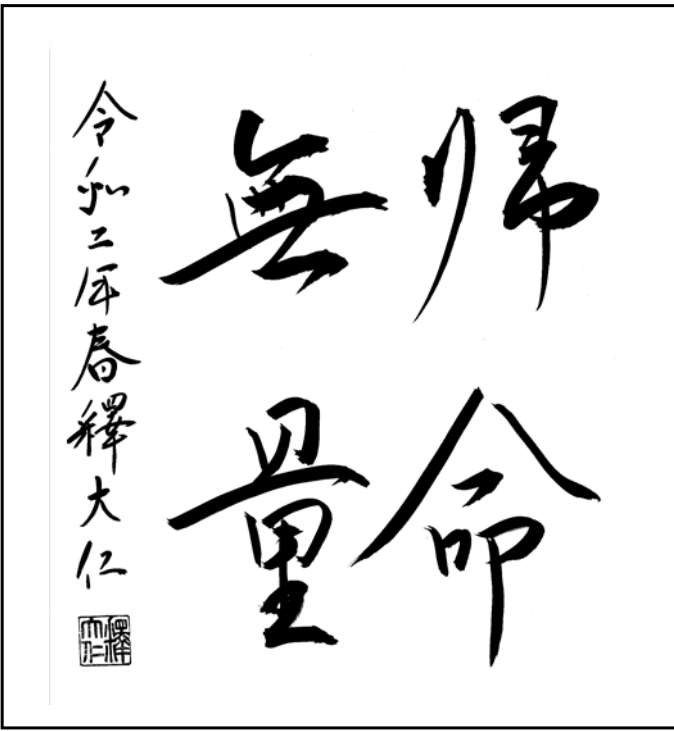 帰命
無量
令和二年春釋大仁
釋大仁